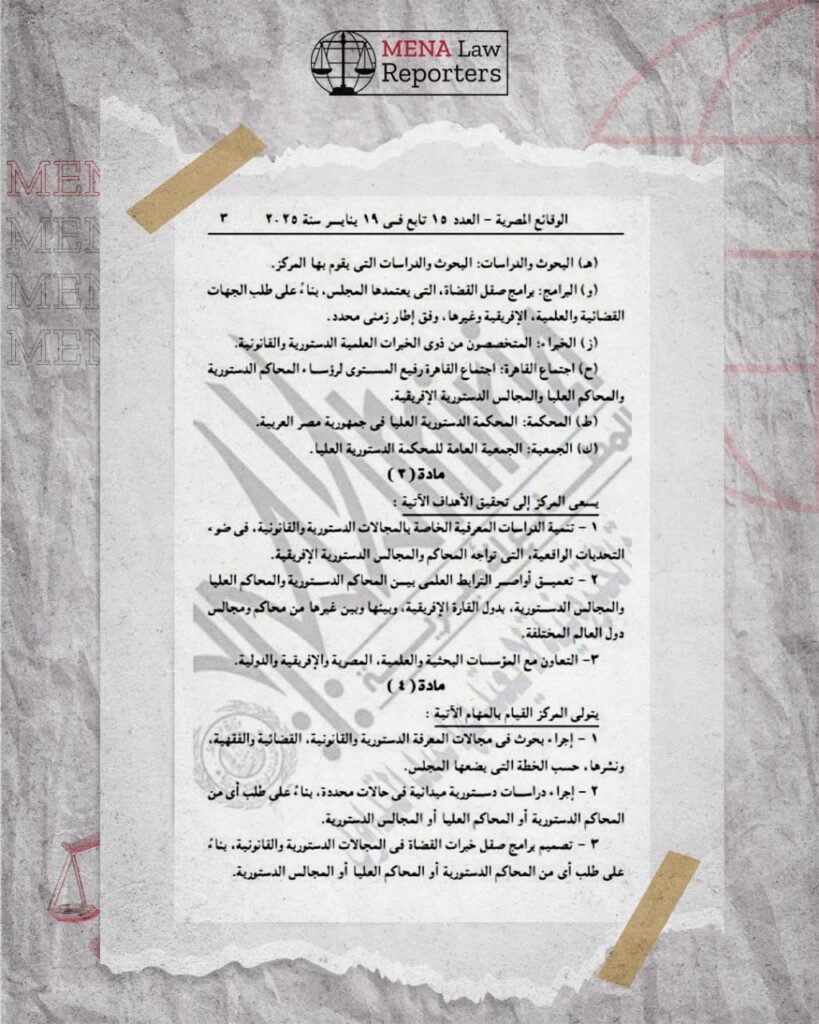 MENA Law
Reporters
MEN
MEN
MEN
MEN
الوقائع المصرية - العدد ١٥ تابع فى ١٩ ينايـر سنة ٢٠٢٥ ٣
(هـ) البحوث والدراسات: البحوث والدراسات التى يقوم بها المركز.
(و) البرامج: برامج صقل القضاة، التى يعتمدها المجلس، بناءً على طلب الجهات
القضائية والعلمية، الإفريقية وغيرها، وفق إطار زمنى محدد.
(ز) الخبراء: المتخصصون من ذوى الخبرات العلمية الدستورية والقانونية.
(ح) اجتماع القاهرة: اجتماع القاهرة رفيع المستوى لرؤساء المحاكم الدستورية
والمحاكم العليا والمجالس الدستورية الإفريقية.
(ط) المحكمة: المحكمة الدستورية العليا فى جمهورية مصر العربية.
(ك) الجمعية: الجمعية العامة للمحكمة الدستورية العليا.
مادة (٣)
يسعى المركز إلى تحقيق الأهداف الآتية :
١ - تنمية الدراسات المعرفية الخاصة بالمجالات الدستورية والقانونية، فى ضوء
التحديات الواقعية، التى تواجه المحاكم والمجالس الدستورية الإفريقية.
٢ - تعميـق أواصـر الترابط العلمى بيـن المحاكم الدسـتورية والمحاكم العليا
والمجالس الدسـتورية، بدول القارة الإفريقية، وبينها وبين غيرها من محاكم ومجالس
دول العالم المختلفة.
٣- التعاون مع المؤسسات البحثية والعلمية، المصرية والإفريقية والدولية.
مادة (٤)
يتولى المركز القيام بالمهام الآتية :
١ - إجراء بحوث فى مجالات المعرفة الدستورية والقانونية، القضائية والفقهية،
ونشرها، حسب الخطة التى يضعها المجلس.
٢ - إجراء دراسـات دسـتورية ميدانية فى حالات محددة، بناءً على طلب أى من
المحاكم الدستورية أو المحاكم العليا أو المجالس الدستورية.
٣ - تصميم برامج صقل خبرات القضاة فى المجالات الدستورية والقانونية، بناءً
على طلب أى من المحاكم الدستورية أو المحاكم العليا أو المجالس الدستورية.